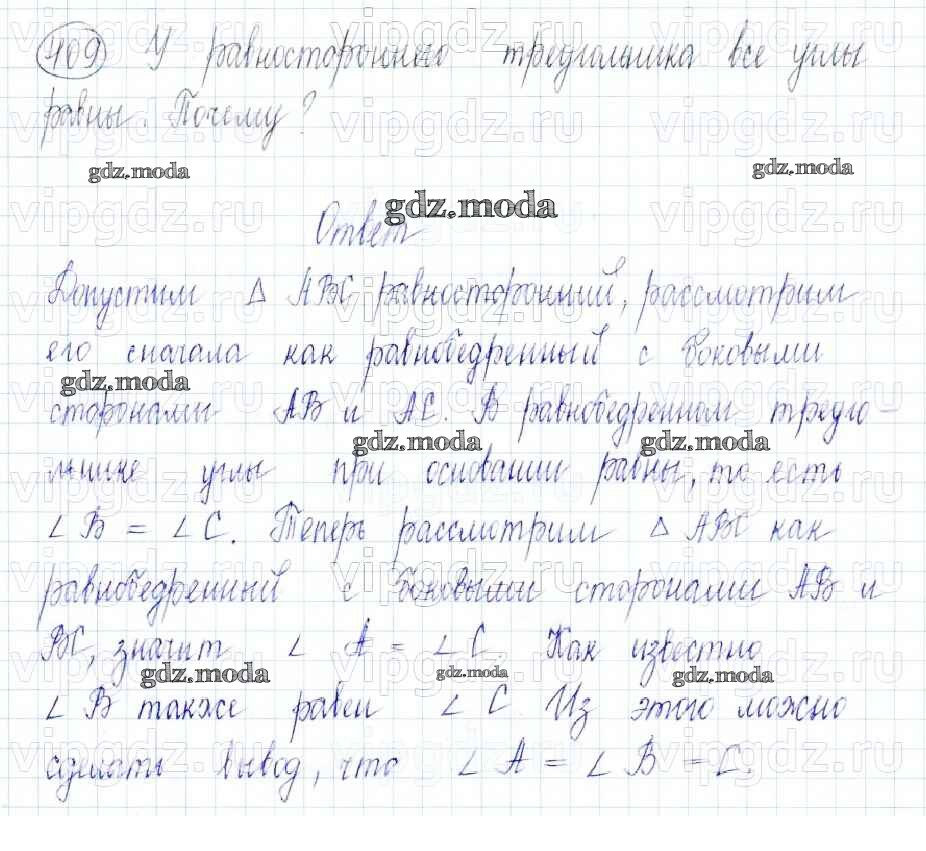 409 У равностороннего треугольника все углы
равны. Почему?
gdz.moda gdz.moda
gdz.moda
Ответ
Допустим △ ABC равносторонний, рассмотрим
его сначала как равнобедренный с боковыми
gdz.moda
сторонами AB и AC. В равнобедренном треуго-
gdz.moda gdz.moda
льнике углы при основании равны, то есть
∠ B = ∠ C. Теперь рассмотрим △ ABC как
равнобедренный с боковыми сторонами AB и
BC, значит ∠ A = ∠ C. Как известно
gdz.moda gdz.moda gdz.moda
∠ B также равен ∠ C Из этого можно
сделать вывод, что ∠ A = ∠ B = C.
vipgdz.ru